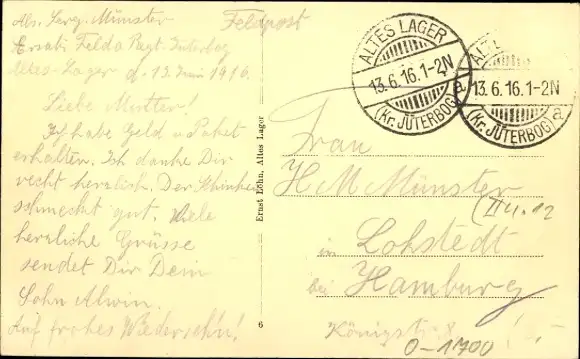 Abs. Serg. Münster
Feldpost
Ersatz Felda Regt. Jüterbog
Altes-Lager d. 13. Juni 1916.
Liebe Mutter!
Ich habe Geld u Paket
erhalten. Ich danke Dir
recht herzlich. Der Schinken
schmeckt gut. Viele
herzliche Grüsse
sendet Dir Dein
Sohn Alwin.
Auf frohes Wiedersehn!
Ernst Löhn, Altes Lager
6
ALTES LAGER
13.6.16.1-2N
a
(Kr. JÜTERBOG)
ALTES
13.6.16.1-2N
a
(Kr. JÜTERBOG)
Frau
H M Münster
in Lokstedt
bei Hamburg
Königstr. 8
0-1700